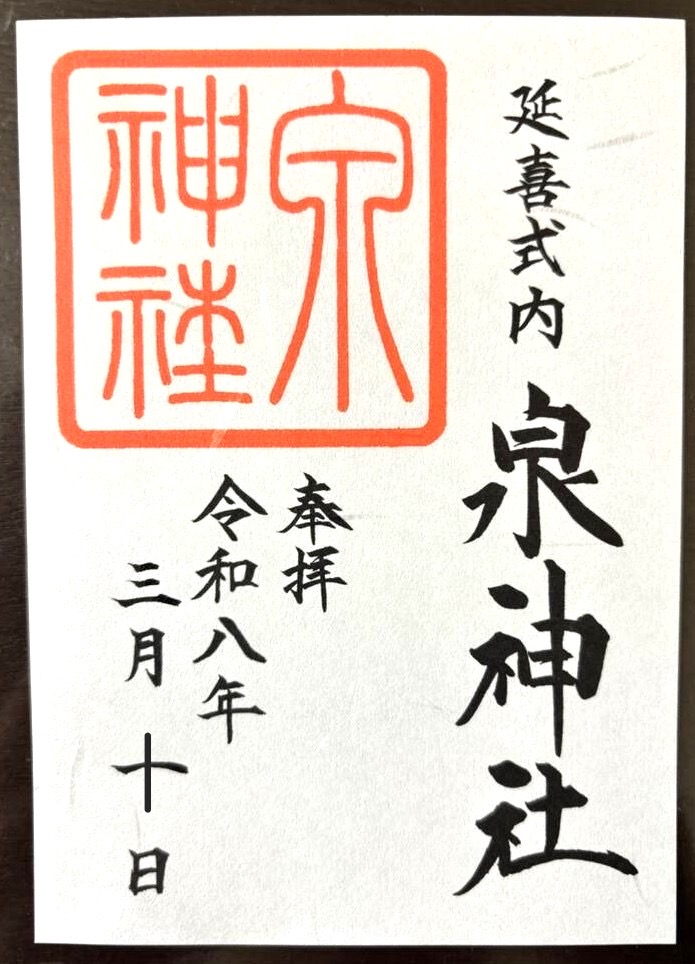 延喜式内 泉神社
奉拝
令和八年
三月十日
泉
神社